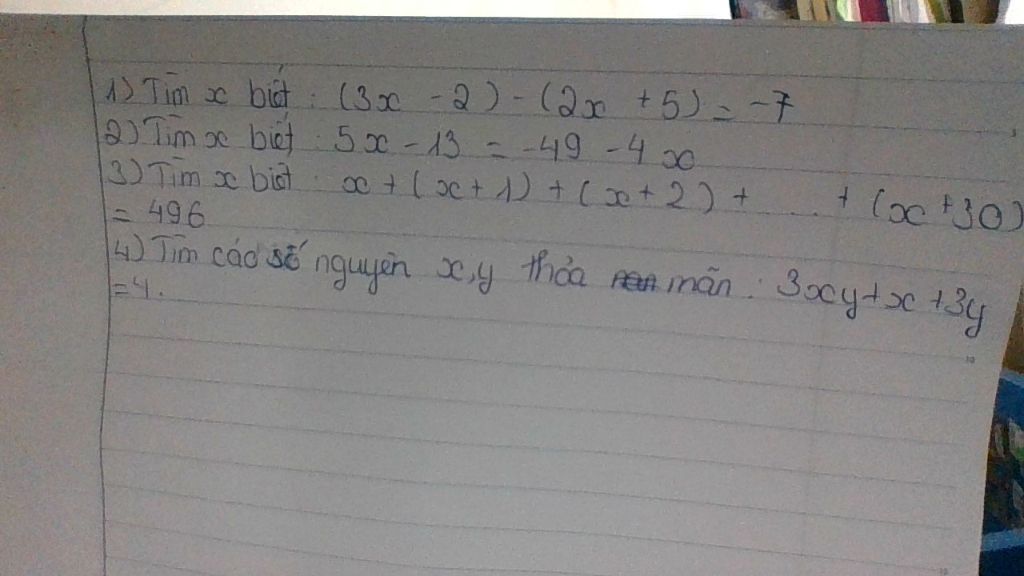 1) Tìm x biết : (3x - 2) - (2x + 5) = -7
2) Tìm x biết : 5x - 13 = -49 - 4x
3) Tìm x biết : x + (x + 1) + (x + 2) + ... + (x + 30)
= 496
4) Tìm các số nguyên x,y thỏa mãn : 3xy + x + 3y
= 4.